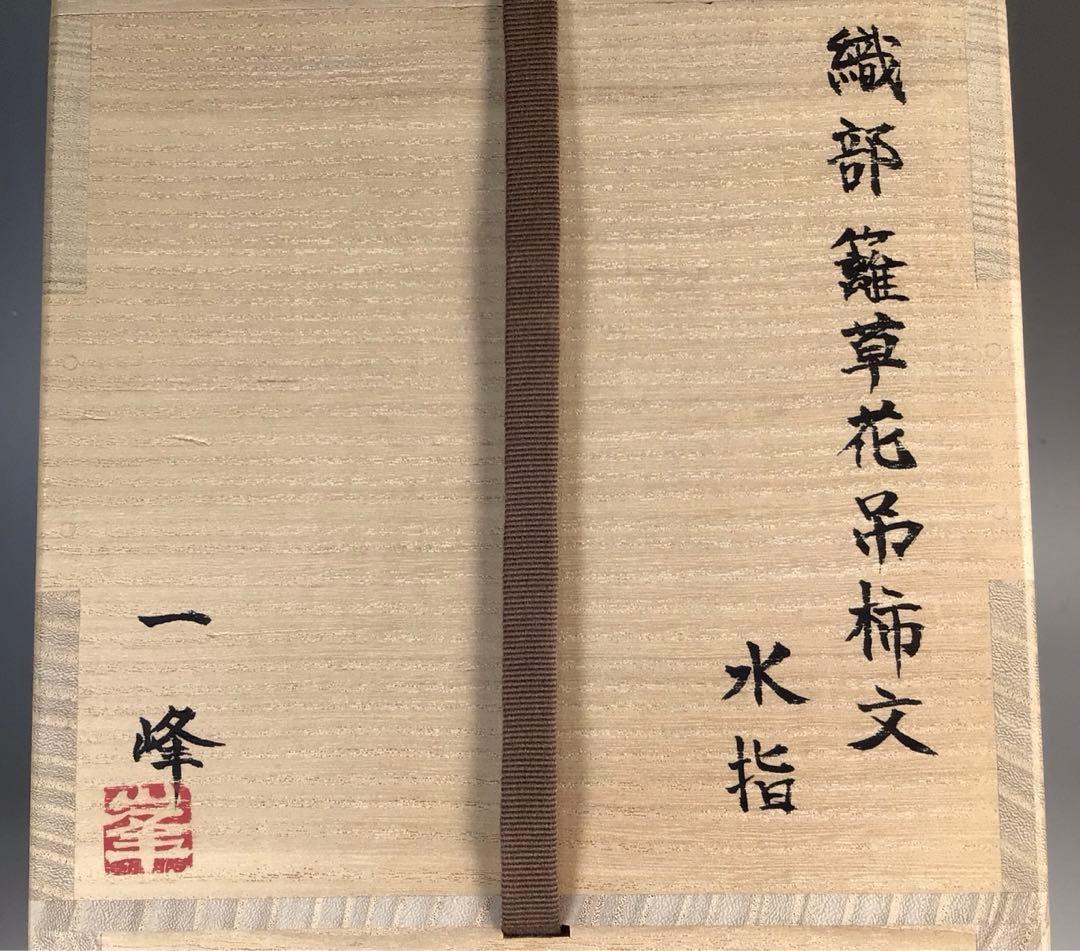 織部 籬草花吊柿文
水指
一峰